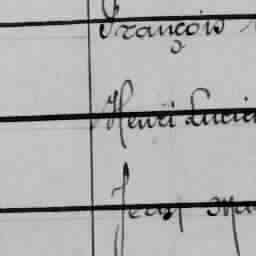 François
Henri Lucie
Jean Ma